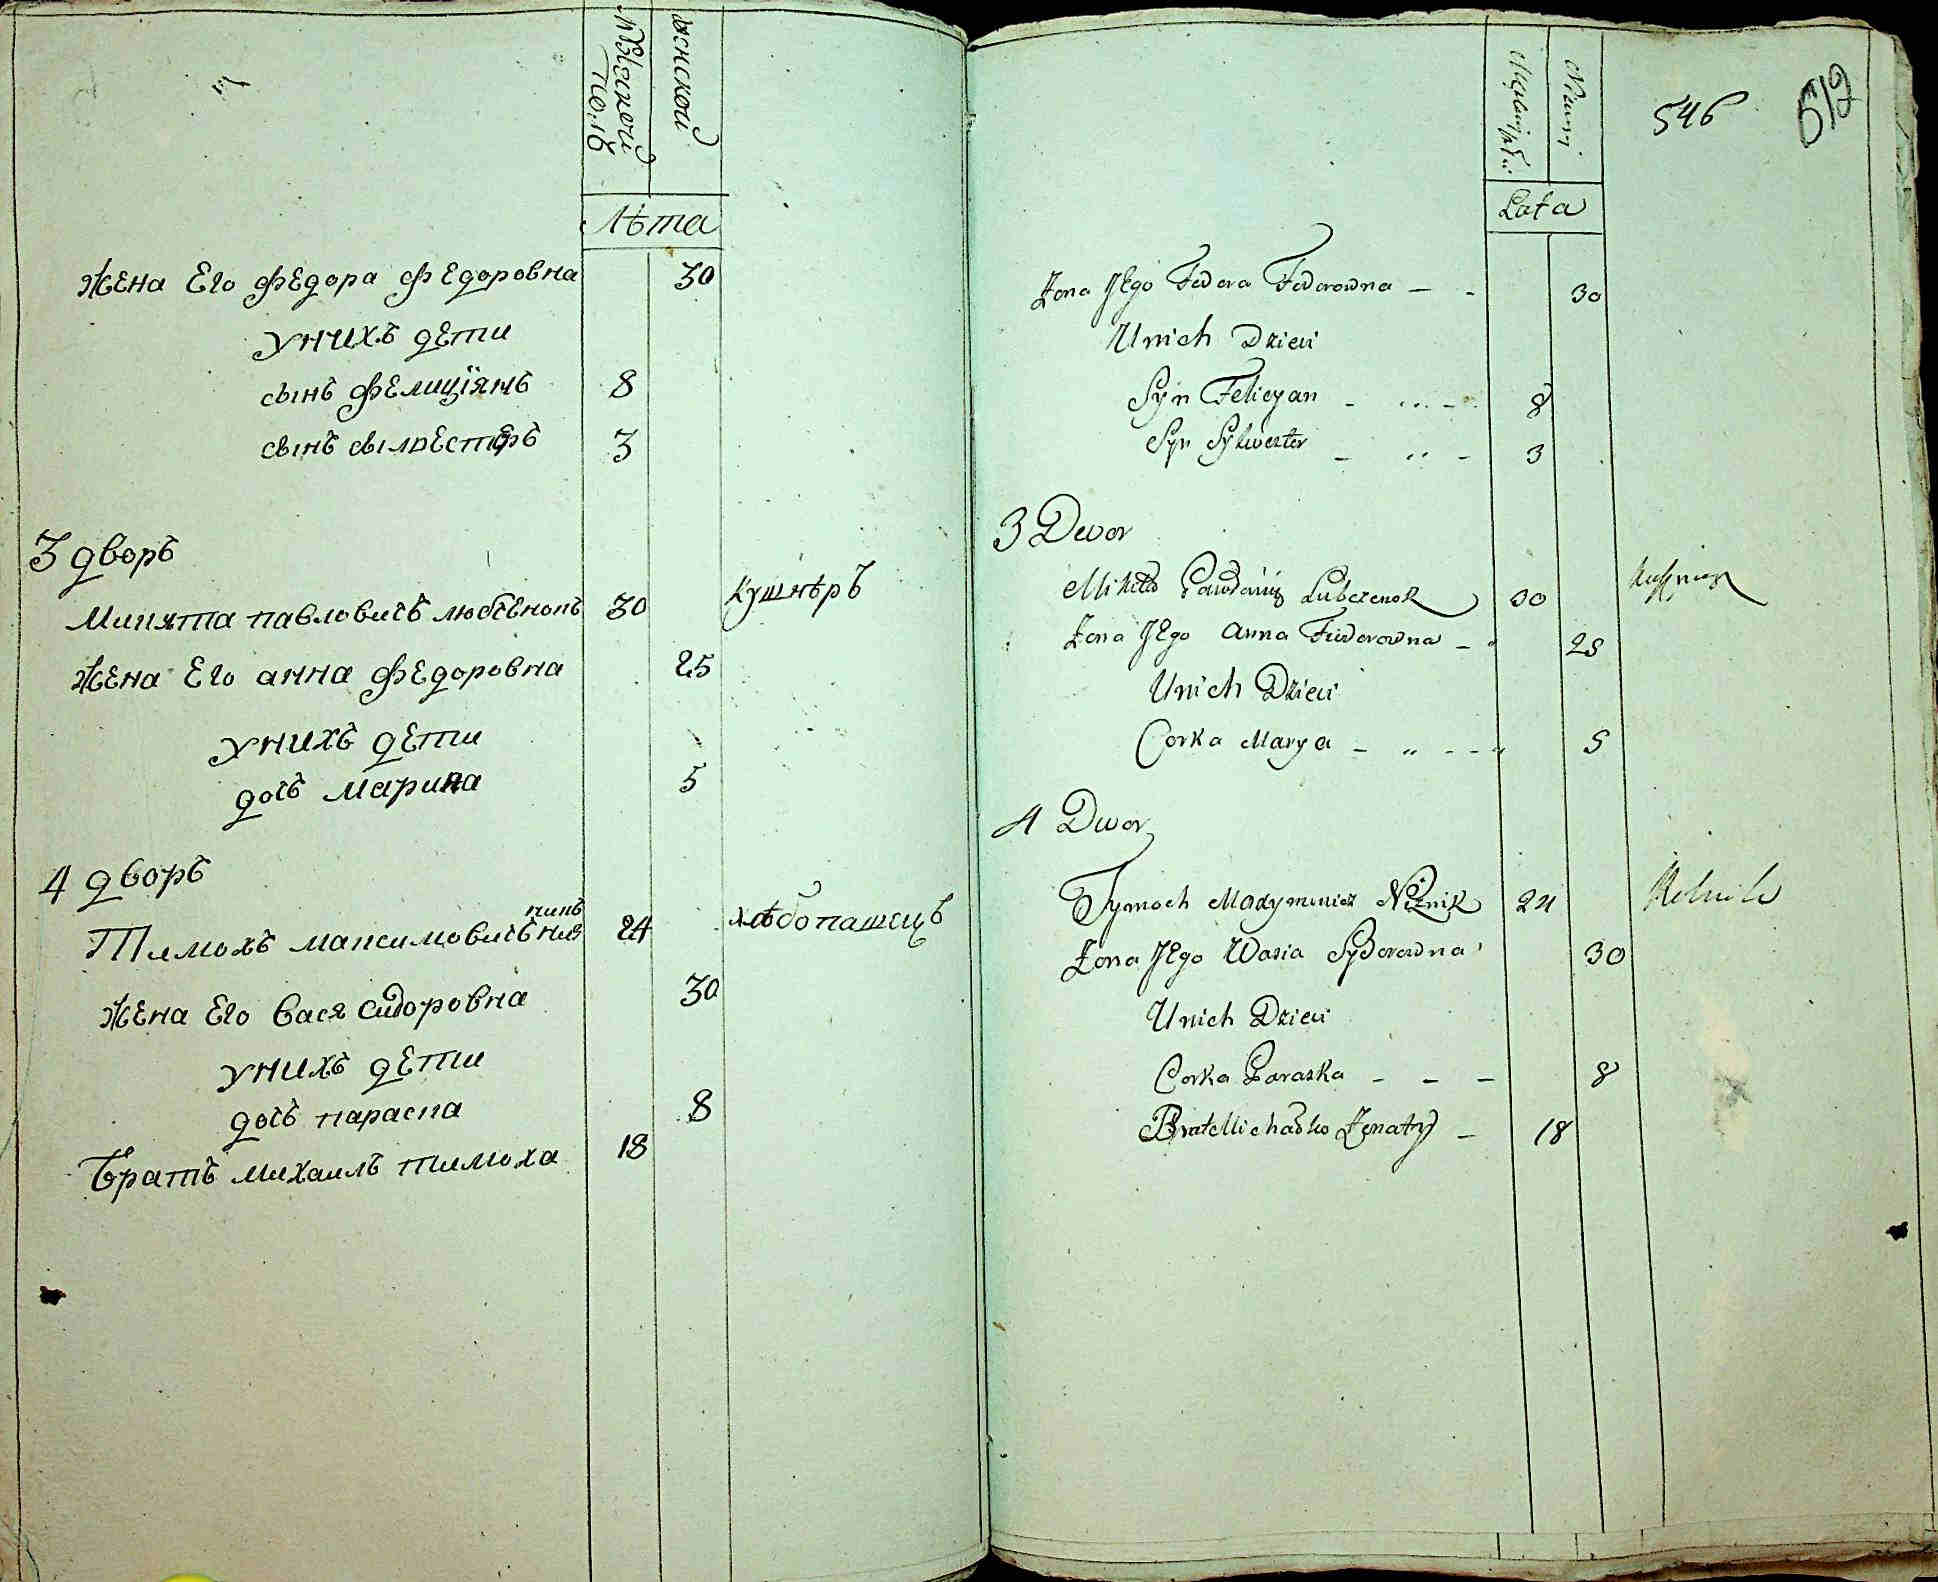 мужескои
полъ
женской
Лѣта
Жена Его Федора Федоровна 30
У нихъ дети
сынъ Фелиціянъ 8
сынъ сылвестеръ 3
3 дворъ
Микита павловичъ любченокъ 30 кушнѣръ
Жена Его анна Федоровна 25
У нихъ дети
дочь Марина 5
4 дворъ
Тимохъ максимовичъ 24 хлѣбопашецъ
Жена Его Вася Сидоровна 30
У нихъ дети
дочь параска 8
Братъ михаилъ тимоха 18
546 512
Lata
Żona Jego Fedora Fedorowna 30
Unich Dzieci
Syn Felicyan 8
Syn Sylwester 3
3 Dwor
Mikita Pawłowicz Lubczenok 30 Kusznierz
Żona Jego Anna Fiedorowna 25
Unich Dzieci
Corka Marya 5
4 Dwor
Tymoch Maxymowicz Niżnik 24
Żona Jego Wasia Sydorowna 30
Unich Dzieci
Corka Paraska 8
Brat Michałko Żonaty 18